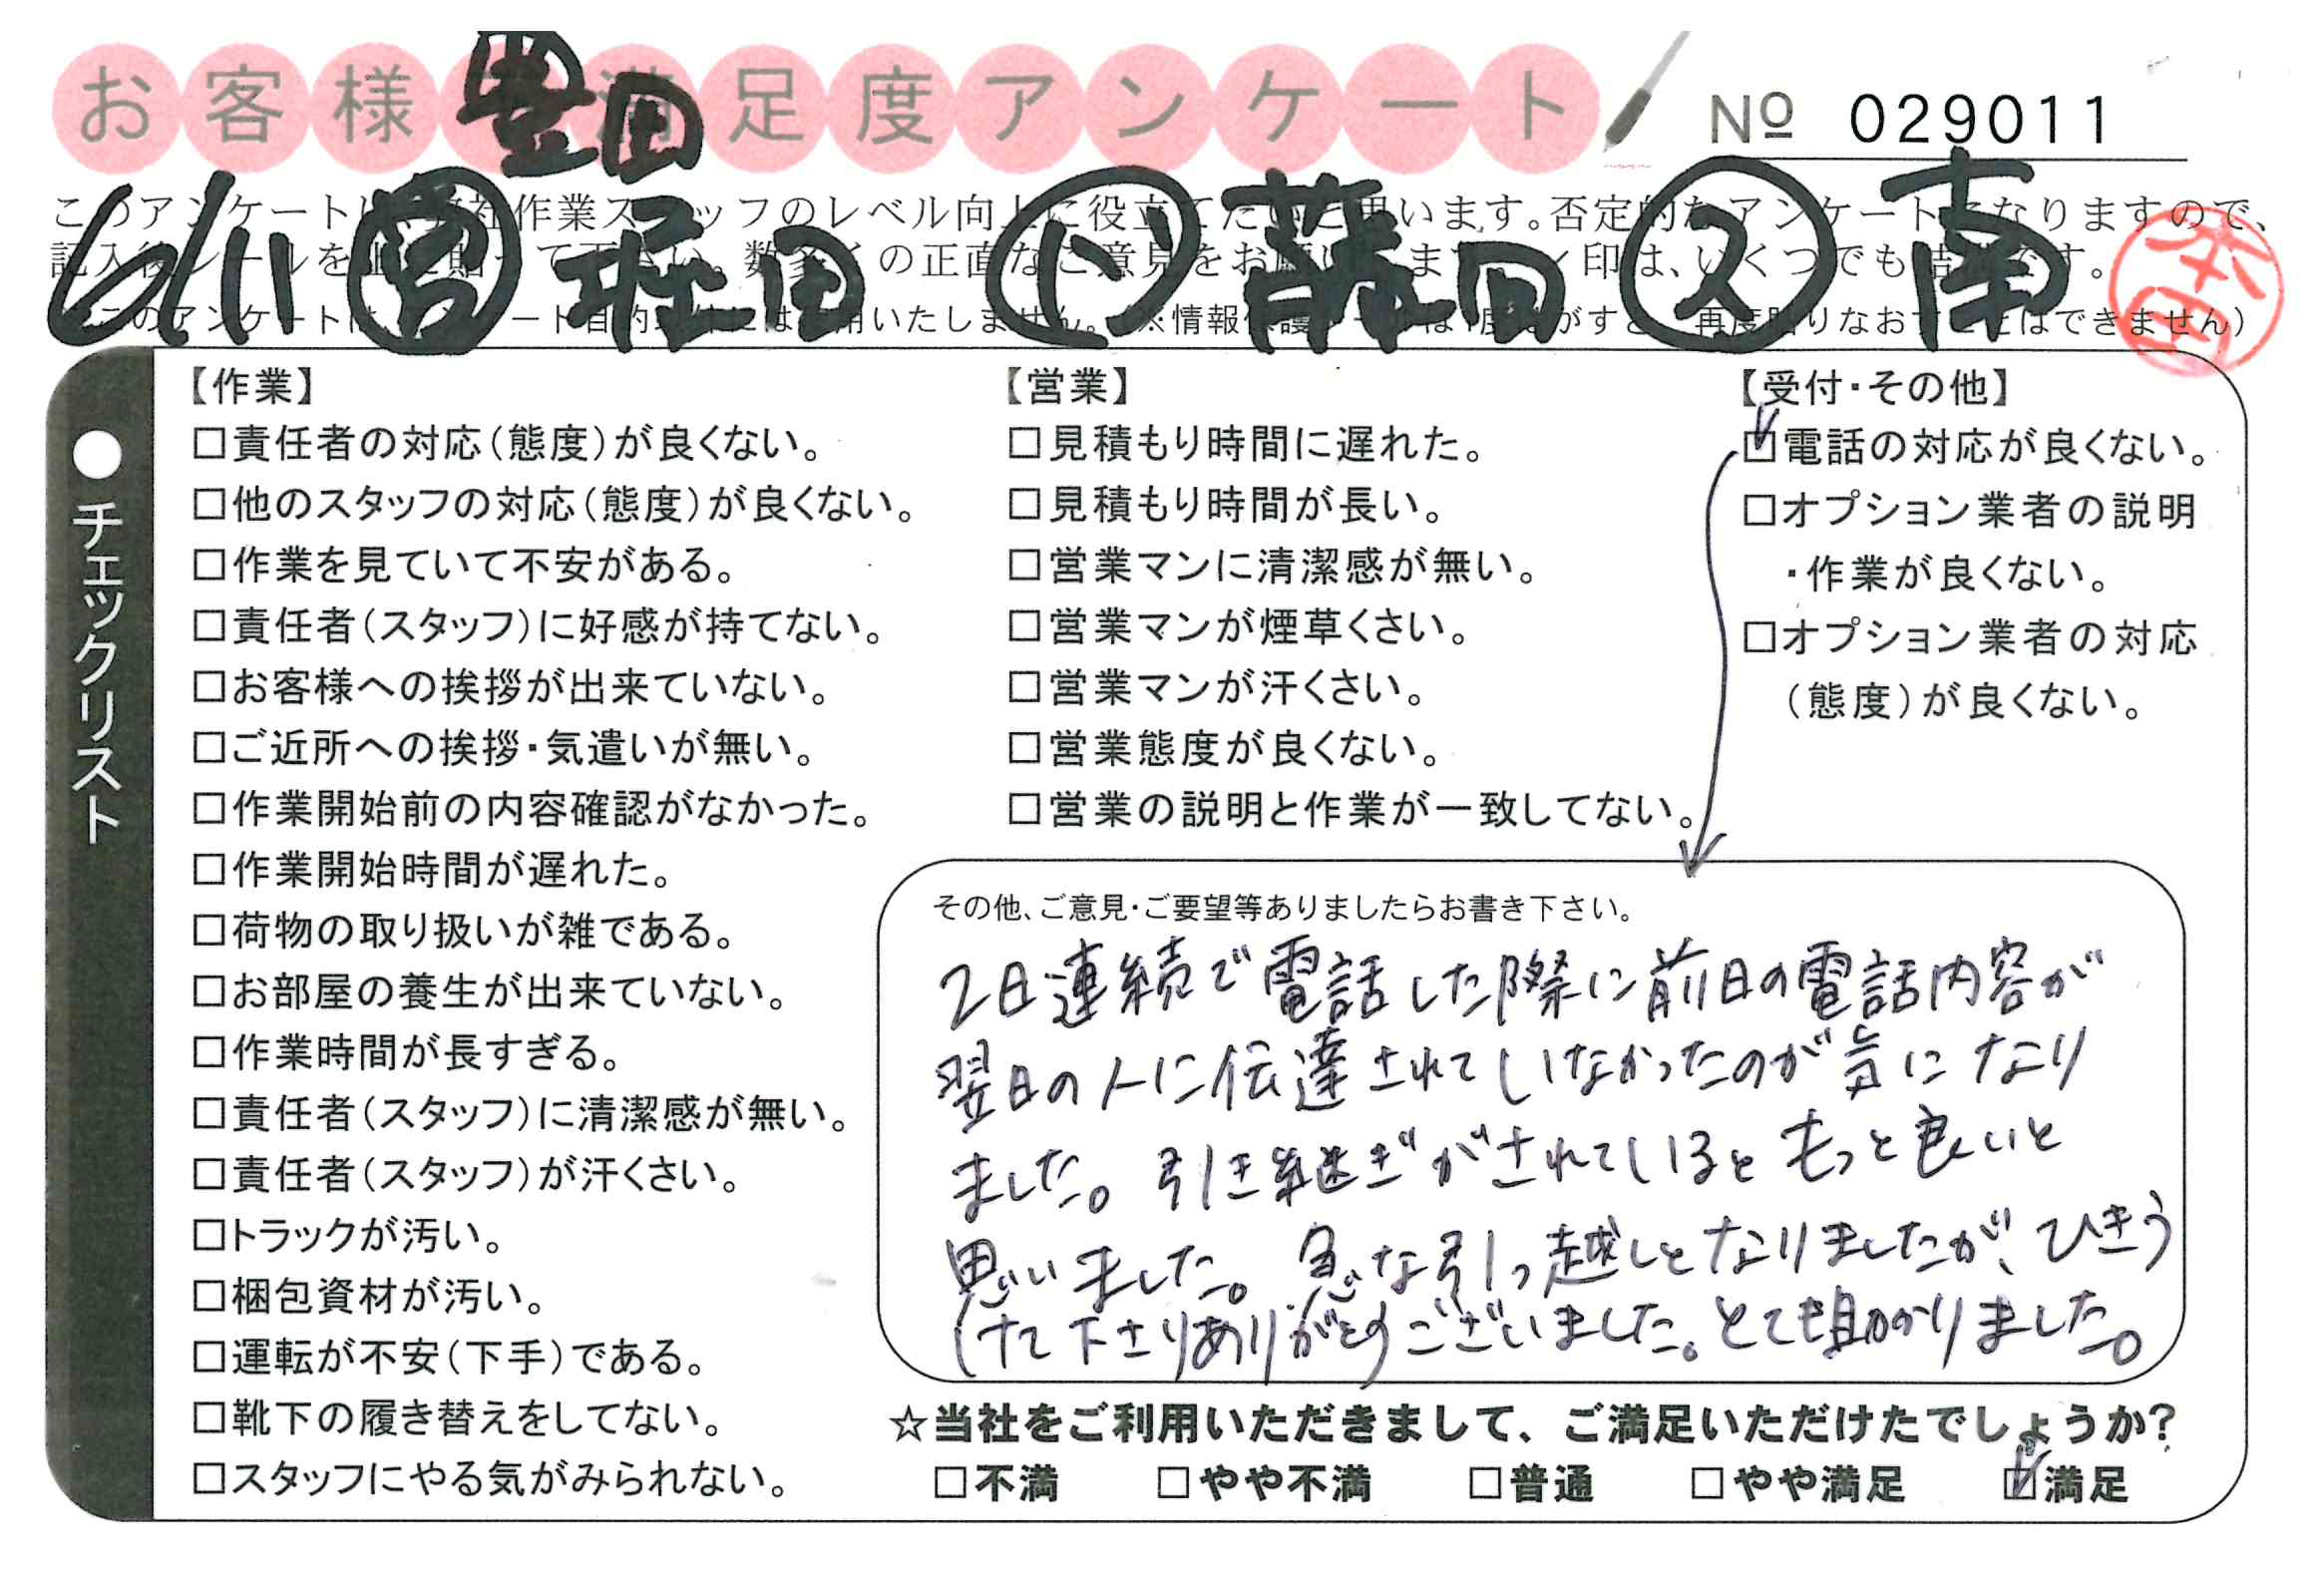 お客様 満足度アンケート
豊田
№ 029011
6/11 営 堀田 ド 藤田 ス 南
本田
このアンケートは、当社作業スタッフのレベル向上に役立てたいと思います。否定的なアンケートになりますので、
記入後シールを上に貼って下さい。数多くの正直なご意見をお願いします。レ印は、いくつでも結構です。
このアンケートは、アンケート目的以外には使用いたしません。(※情報保護シールは1度はがすと、再度貼りなおすことはできません)
●チェックリスト
【作業】
□責任者の対応(態度)が良くない。
□他のスタッフの対応(態度)が良くない。
□作業を見ていて不安がある。
□責任者(スタッフ)に好感が持てない。
□お客様への挨拶が出来ていない。
□ご近所への挨拶・気遣いが無い。
□作業開始前の内容確認がなかった。
□作業開始時間が遅れた。
□荷物の取り扱いが雑である。
□お部屋の養生が出来ていない。
□作業時間が長すぎる。
□責任者(スタッフ)に清潔感が無い。
□責任者(スタッフ)が汗くさい。
□トラックが汚い。
□梱包資材が汚い。
□運転が不安(下手)である。
□靴下の履き替えをしてない。
□スタッフにやる気がみられない。
【営業】
□見積もり時間に遅れた。
□見積もり時間が長い。
□営業マンに清潔感が無い。
□営業マンが煙草くさい。
□営業マンが汗くさい。
□営業態度が良くない。
□営業の説明と作業が一致してない。
【受付・その他】
☑電話の対応が良くない。
□オプション業者の説明
・作業が良くない。
□オプション業者の対応
(態度)が良くない。
その他、ご意見・ご要望等ありましたらお書き下さい。
2日連続で電話した際に前日の電話内容が
翌日の人に伝達されていなかったのが気になり
ました。引き継ぎがされているともっと良いと
思いました。急な引っ越しとなりましたが、ひきう
けて下さりありがとうございました。とても助かりました。
☆当社をご利用いただきまして、ご満足いただけたでしょうか?
□不満 □やや不満 □普通 □やや満足 ☑満足